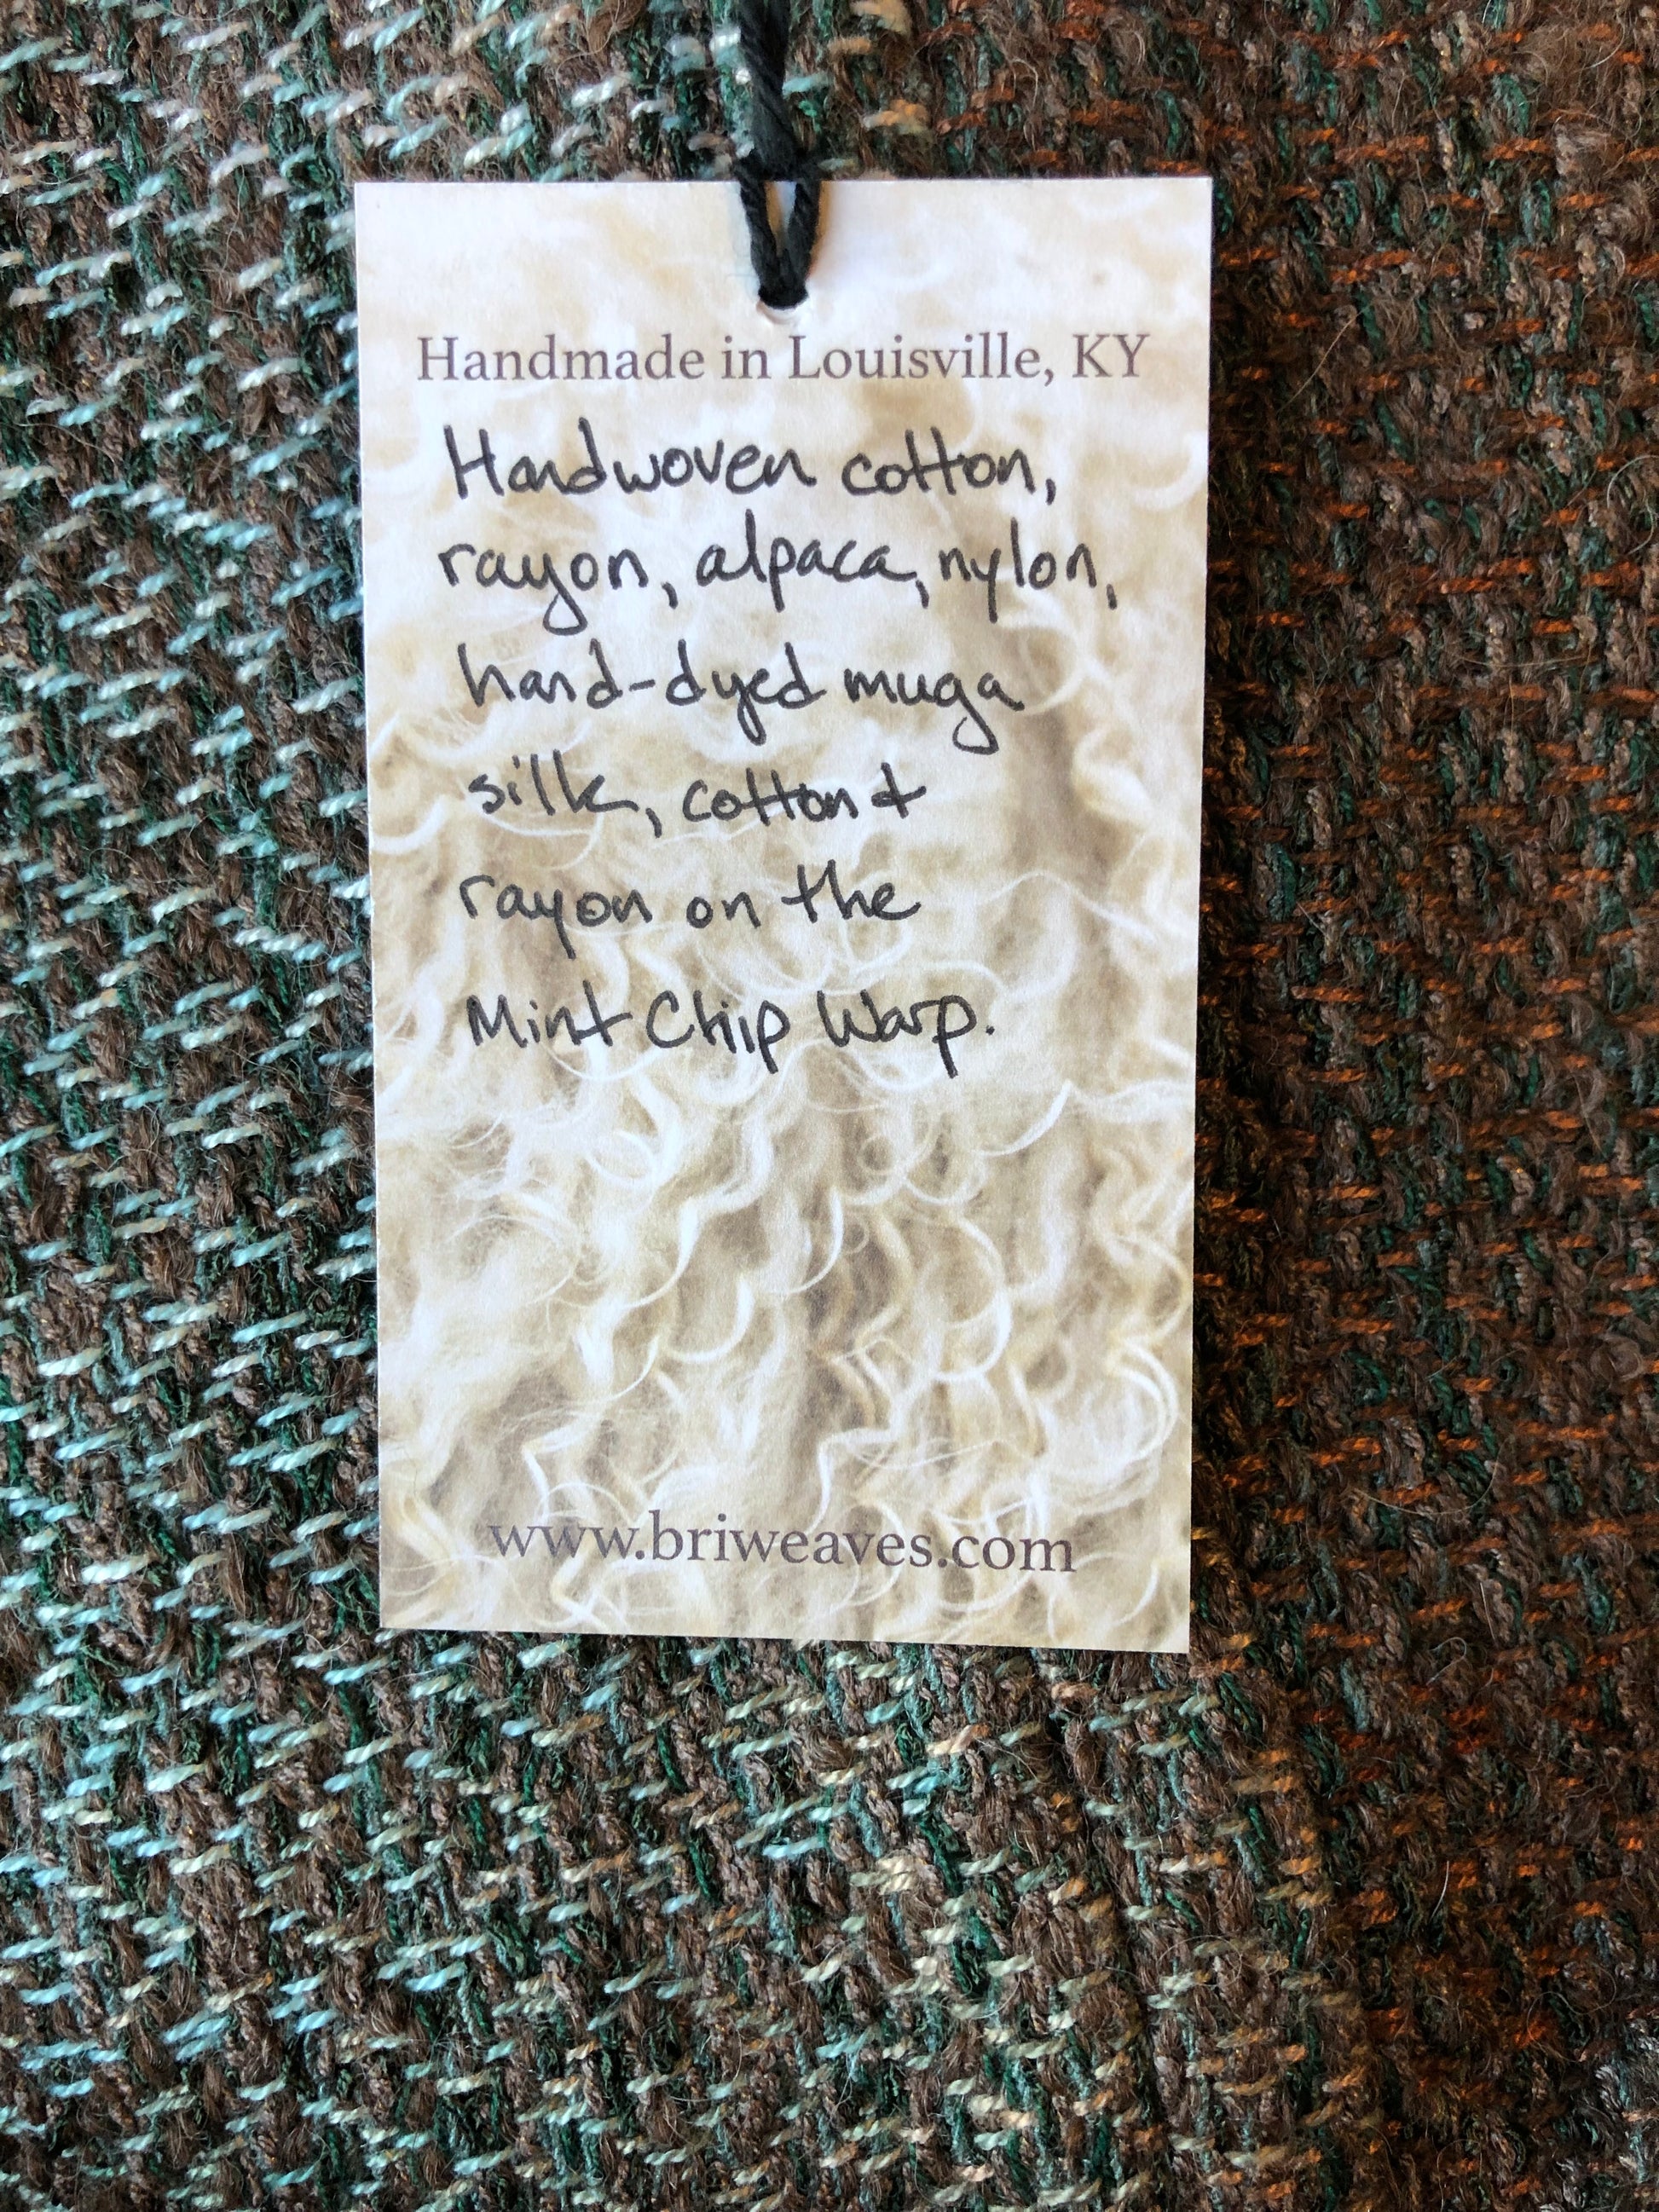 Handmade in Louisville, KY
Handwoven cotton,
rayon, alpaca, nylon,
hand-dyed muga
silk, cotton &
rayon on the
Mint Chip Warp.
www.briweaves.com